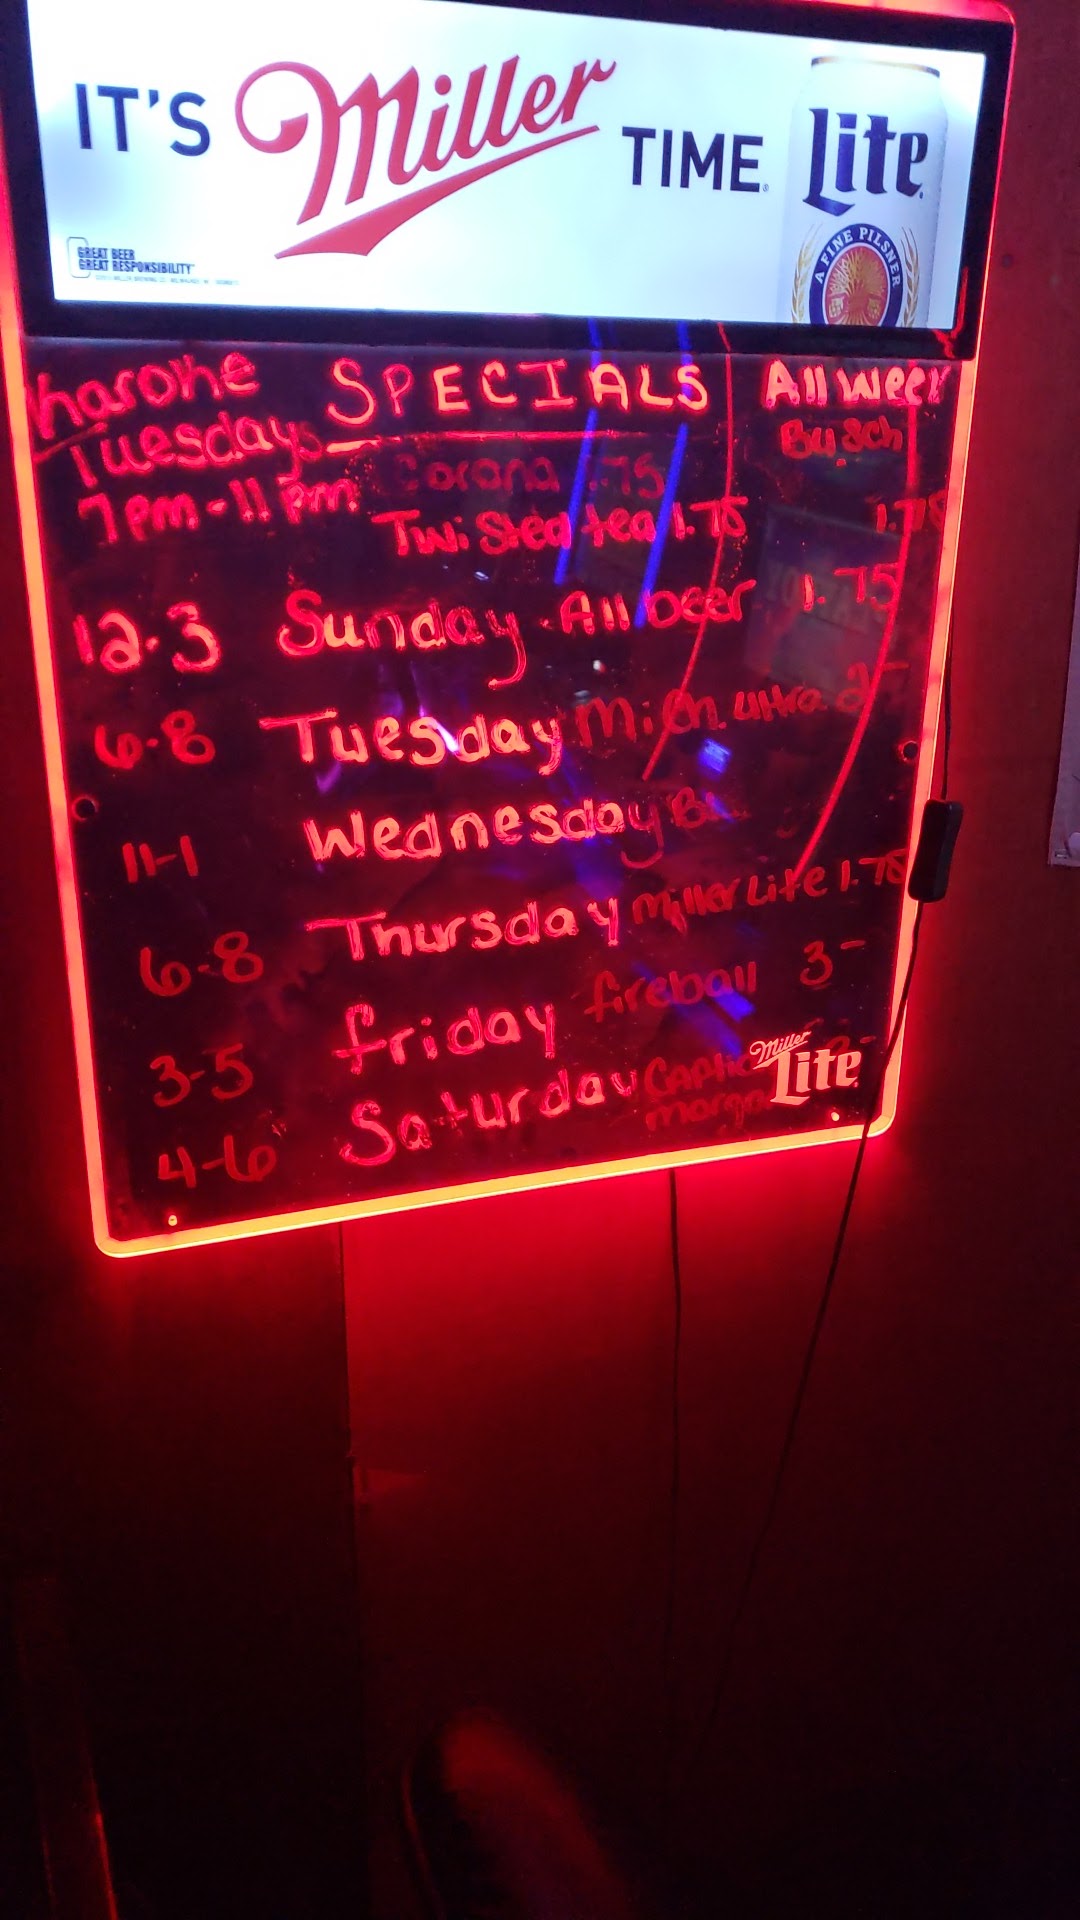 IT'S Miller TIME. Lite
A FINE PILSNER
GREAT BEER
GREAT RESPONSIBILITY
Kharohe SPECIALS All Week
Tuesdays Busch
7pm-11pm Corona 1.75
Twisted tea 1.75 1.75
12-3 Sunday All beer 1.75
6-8 Tuesday Mich ultra 2-
11-1 Wednesday
6-8 Thursday Miller Lite 1.75
3-5 friday fireball 3-
4-6 Saturday
morgan
Miller
Lite